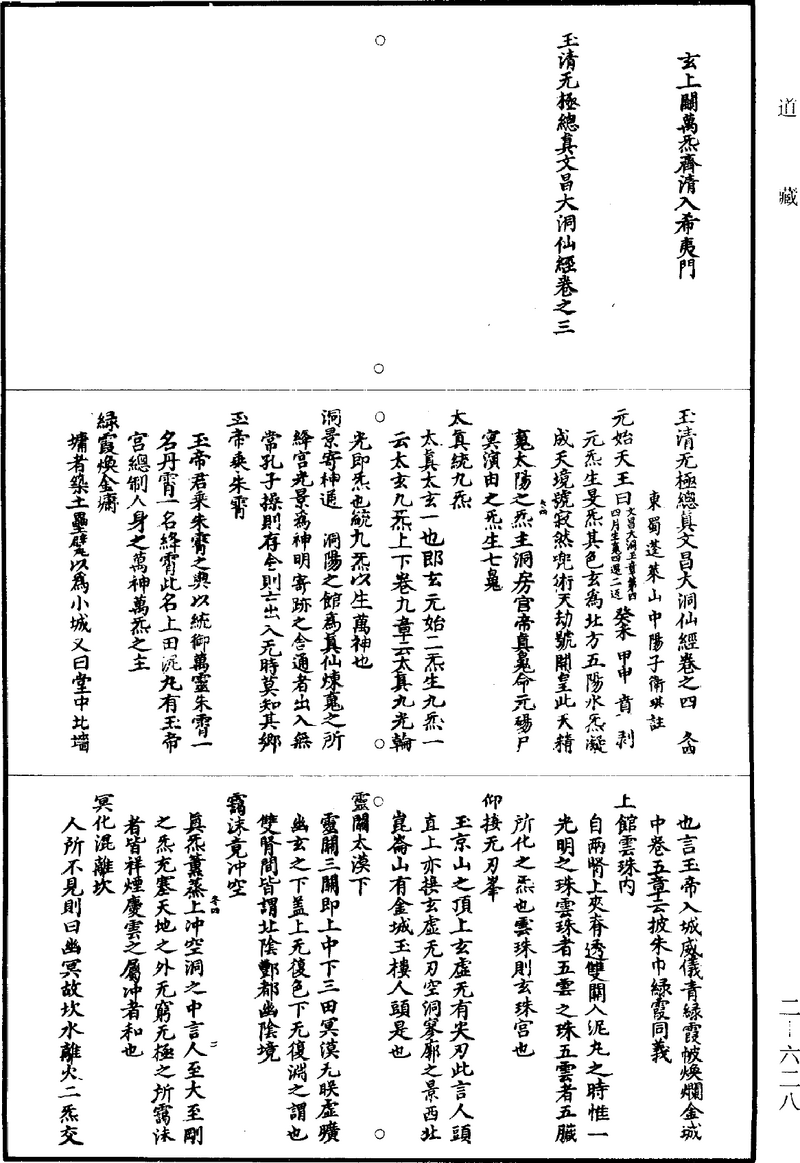 道藏
玄上關萬炁齊清入希夷門
玉清无極總真文昌大洞仙經卷之三
玉清无極總真文昌大洞仙經卷之四 冬四
東蜀蓬萊山中陽子衛琪註
元始天王曰
文昌大洞玉章第四
癸未 甲申 賁 剥
元炁生旻炁其色玄為北方五陽水炁凝
成天境號寂然兜術天劫號開皇此天精
冬四
䰟太陽之炁主洞房宮帝真䰟命元礍尸
冥演由之炁生七䰟
太真統九炁
太真太玄一也即玄元始二炁生九炁一
云太玄九炁上下卷九章云太真九光輪
光即炁也統九炁以生萬神也
洞景寄神通 洞陽之館為真仙煉䰟之所
絳宮光景為神明寄跡之舍通者出入無
常孔子操則存舍則亡出入无時莫知其鄉
玉帝乘朱霄
玉帝君乘朱霄之輿以統御萬靈朱霄一
名丹霄一名絳霄此名上田泥丸有玉帝
宮總制人身之萬神萬炁之主
緑霞煥金墉
墉者築土壘壁以為小城又曰堂中北墻
也言玉帝入城威儀青緑霞帔煥爛金城
中卷五章云披朱巾緑霞同義
上館雲珠内
自兩腎上夾脊透雙關入泥丸之時惟一
光明之珠雲珠者五雲之珠五雲者五臓
所化之炁也雲珠則玄珠宮也
仰接无刃峯
玉京山之頂上玄虛无有尖刃此言人頭
直上亦接玄虛无刃空洞寥廓之景西北
崑崙山有金城玉樓人頭是也
靈關太漠下
靈關三關即上中下三田冥漠无朕虛曠
幽玄之下盖上无復色下无復淵之謂也
雙腎間皆謂北陰酆都幽陰境
靄沫竟冲空
冬四
二
真炁薰蒸上冲空洞之中言人至大至剛
之炁充塞天地之外无窮无極之所靄沫
者皆祥煙慶雲之屬冲者和也
冥化混離坎
人所不見則曰幽冥故坎水離火二炁交
二-六二八